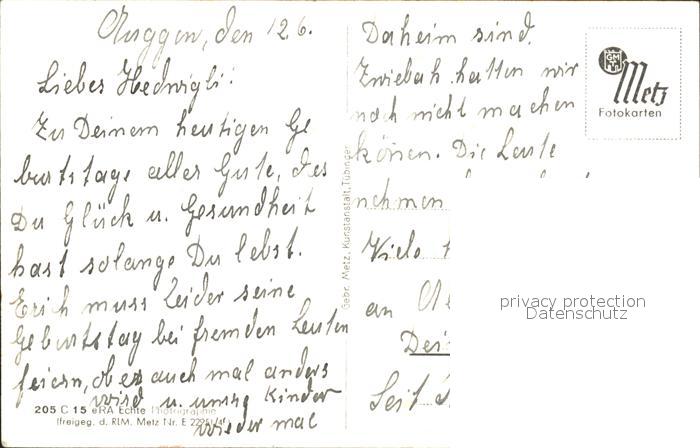 Auggen, den 12.6.
Liebes Hedwigli!
Zu Deinem heutigen Ge
burtstage alles Gute, das
Du Glück u. Gesundheit
hast solange Du lebst.
Erich muss leider seine
Geburtstag bei fremden Leuten
feiern, ob er auch mal anders
wird u. unsre Kinder
wieder mal
205 C 15 eRA Echte Photographie
(freigeg. d. RLM. Metz Nr. E
Gebr. Metz, Kunstanstalt, Tübingen
Daheim sind.
Zwieback hatten wir
noch nicht machen
können. Die Leute
nehmen
Viele
an
Dei
Seit
GM
Metz
Fotokarten
privacy protection
Datenschutz